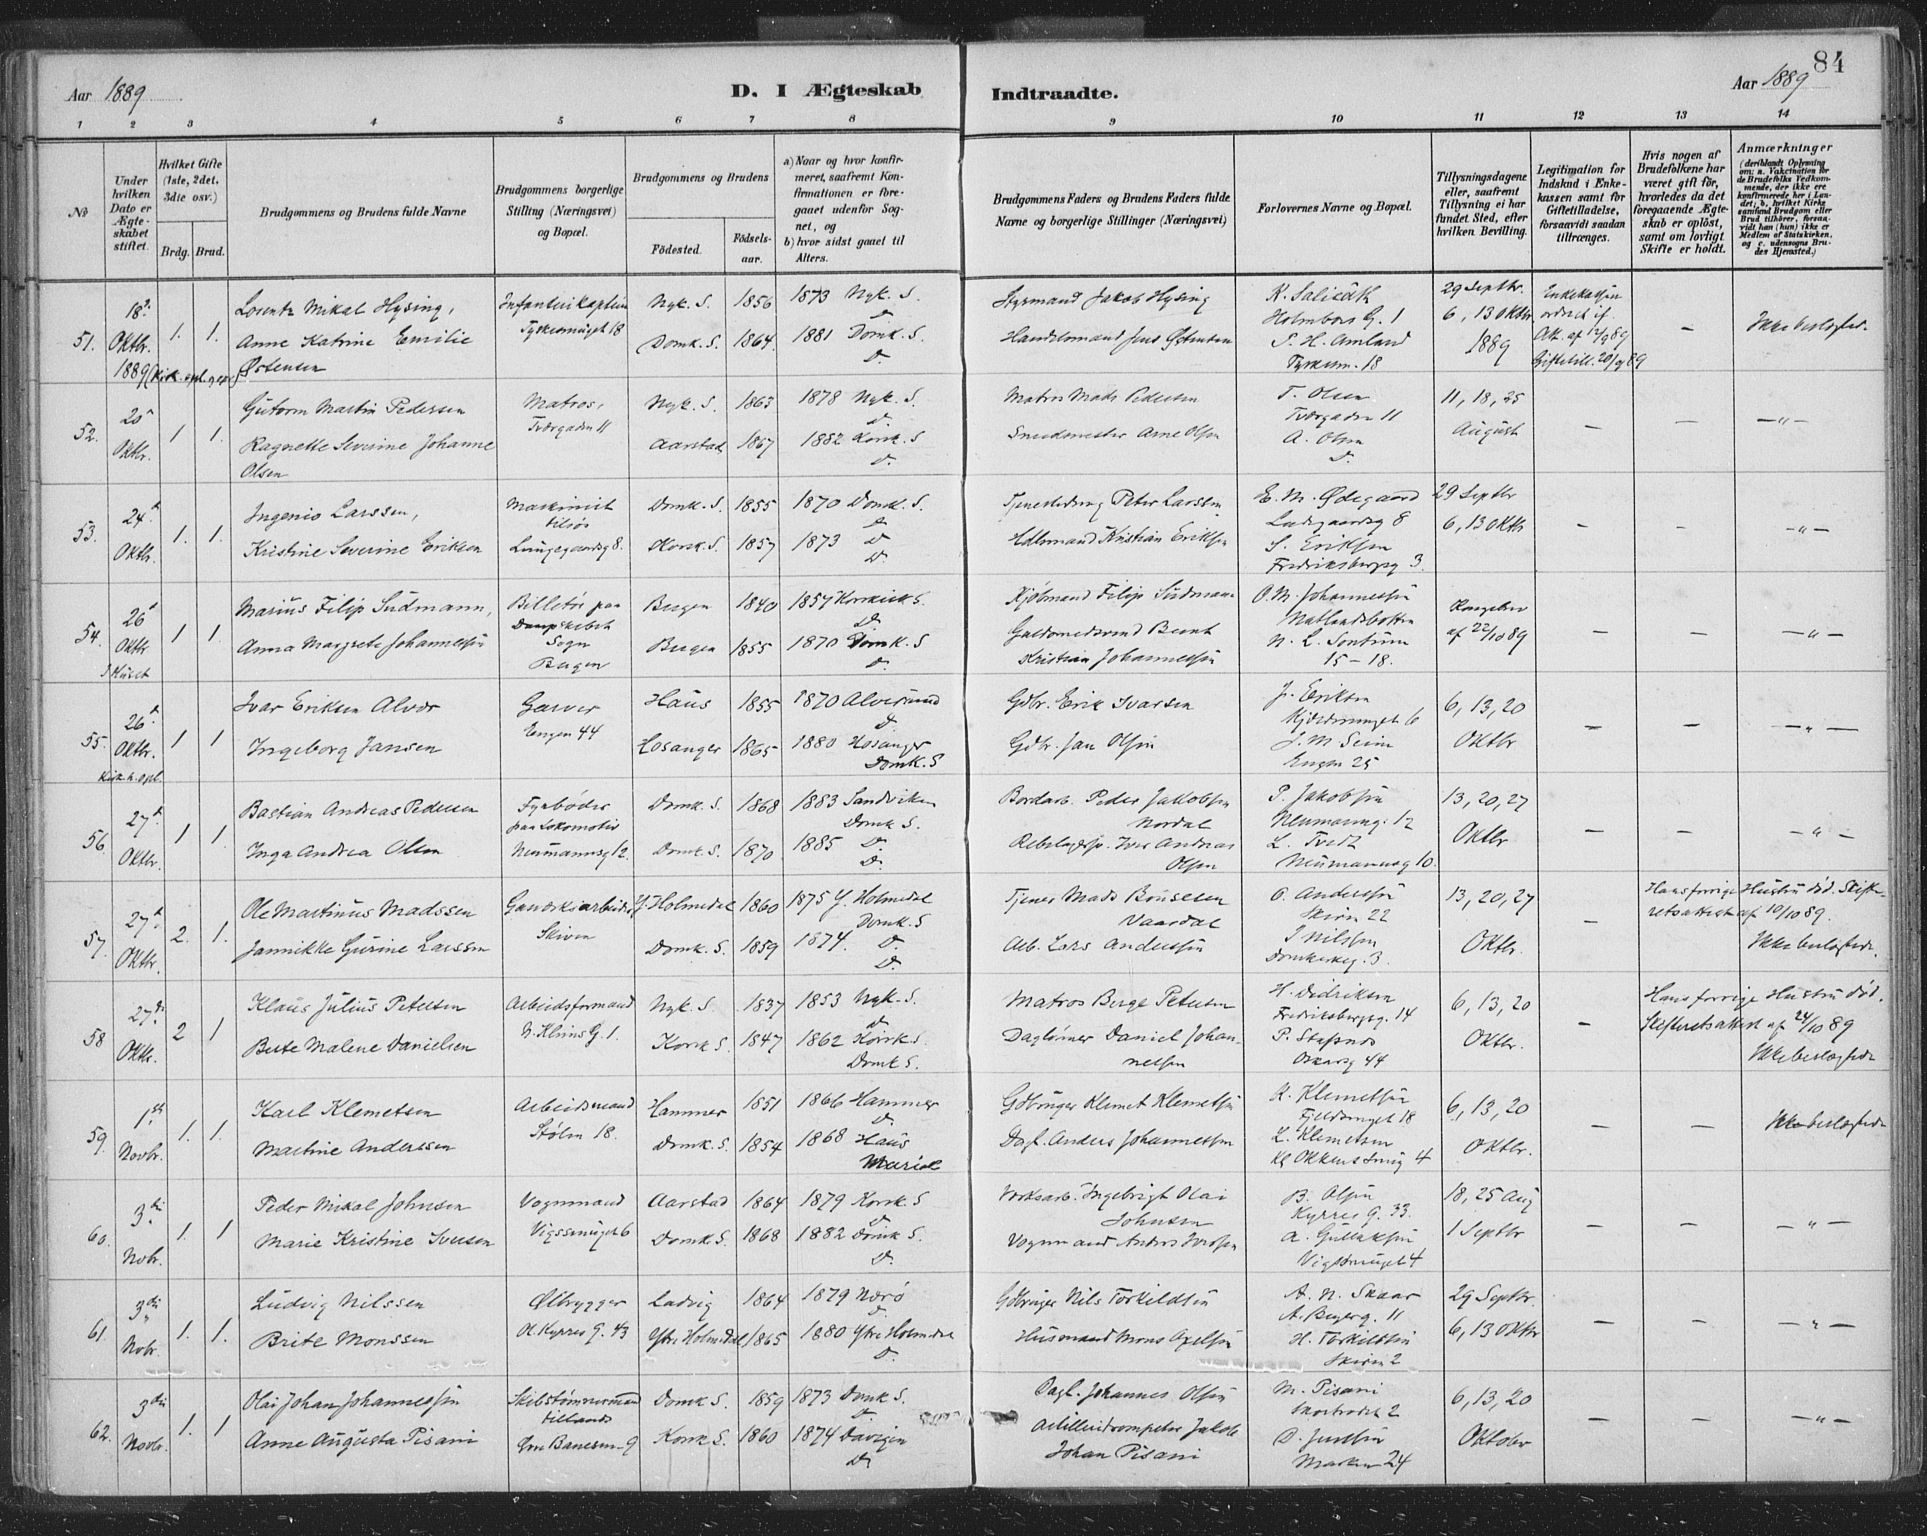 84
Aar 1889
D. I Ægteskab
Indtraadte.
Aar 1889
1 2 3 4 5 6 7 8 9 10 11 12 13 14
No
Under hvilken Dato er Ægteskabet stiftet.
Hvilket Gifte (1ste, 2det, 3die osv.)
Brdg. Brud.
Brudgommens og Brudens fulde Navne
Brudgommens borgerlige Stilling (Næringsvei) og Bopæl.
Brudgommens og Brudens
Fødested.
Fødselsaar.
a) Naar og hvor konfirmeret, saafremt Konfirmationen er foregaaet udenfor Sognet, og
b) hvor sidst gaaet til Alters.
Brudgommens Faders og Brudens Faders fulde Navne og borgerlige Stillinger (Næringsvei)
Forlovernes Navne og Bopæl.
Tillysningsdagene eller, saafremt Tillysning ei har fundet Sted, efter hvilken Bevilling.
Legitimation for Indskud i Enkekassen samt for Giftetilladelse, forsaavidt saadan tiltrænges.
Hvis nogen af Brudefolkene har været gift før, hvorledes da det foregaaende Ægteskab er opløst, samt om lovligt Skifte er holdt.
Anmærkninger
(deriblandt Oplysning om: a. Vaccination for de Brudefolks Vedkommende, der ikke ere konfirmerede her i Landet; b. hvilket Kirkesamfund Brudgom eller Brud tilhører, forsaavidt han (hun) ikke er Medlem af Statskirken, og c. udensogns Brudes Hjemsted.)
51. 18de Oktbr. 1889 1. 1.
Lorentz Mikal Hysing, Infanterikaptein Nyk. S. 1856 1873 Nyk. S. Styrmand Jakob Hysing 29 Septbr.
Anne Katrine Emilie Østensen Domk. S. 1864 1881 Domk. S. D. Handelsmand Jens Østensen Holmboes G. 1 S. H. Amland 6, 13 Oktbr. 1889 Giftetill. 20/9 89 – Ikke beslægtede
52. 20 Oktbr. 1 1.
Gutorm Martin Pedersen Matros, Tværgaden 11 Nyk. S. 1863 1878 Nyk. S. D. Matros Mads Pedersen T. Olsen Tværgaden 11 11, 18, 25
Ragnette Severine Johanne Olsen Aarstad 1867 1882 Korsk. S D. Smedmester Arne Olsen A. Olsen D. August – – –"–
53. 24 Oktbr. 1. 1.
Ingenio Larssen, Maskinist tilsøs Domk. S. 1855 1870 Domk. S. D Peter Larssen E. M. Ødegaard Ladegaardsg 8 29 Septbr
Kristine Severine Eriksen Lungegaardsg 8. Korsk. S. 1857 1873 D D. Kristian Eriksen S. Eriksen Fredriksbergsg 3. 6, 13 Oktbr – – –"–
54. 26 Oktbr I Huset 1 1.
Marius Filip Südmann, Billetør paa Dampskibet Sogn Bergen Bergen 1840 1857 Korskirk S. D. Kjøbmand Filip Südmann O. M. Johannessen
Anna Margrete Johannessen Bergen 1855 1870 Domk. S D. Guldsmedsvend Bernt Kristian Johannessen N. L. Sontum 15–18. af 22/10 89 – – –"–
55. 26 Oktbr. 1 1
Ivar Eriksen Alvær Garver Engen 44 Haus 1855 1870 Alversund D. Gdbr. Erik Ivarsen J. Eriksen 6, 13, 20
Ingeborg Jansen Hosanger 1865 1880 Hosanger Domk. S Gdbr. Jan Olsen J. M Seim Engen 25 Oktbr – – –"–
56. 27 Oktbr. 1 1
Bastian Andreas Pedersen Fyrbøder paa Lokomotiv Neumannsg 12. Domk. S. 1868 1883 Sandviken Domk S. Peder Jakobsen Nordal P. Jakobsen Neumannsg. 12 13, 20, 27
Inga Andrea Olsen Domk. S. 1870 1885 D. D. Iver Andreas Olsen L. Tvedt Neumannsg 10. Oktbr – – –"–
57. 27 Oktbr. 2. 1.
Ole Martinus Madssen Ganøskiarbeider Skiven Y. Holmedal 1860 1875 Y. Holmedal Domk. S Tjener Mads O. Anderssen Skiven 22 13, 20, 27 Hans forrige Hustru død. Skifteretsattest af 10/10 89.
Jannikke Gurine Larssen Domk. S. 1859 1874. D. D. Arb. Lars Anderssen J Nilssen Domkirkeg. 3. Oktbr. – Ikke beslægtede
58 27de Oktbr. 2 1
Klaus Julius Petersen Arbeidsformand N. Klims G. 1. Nyk. S. 1837 1853 Nyk. S. D Matros Berge Petersen H. Didriksen Fredriksbergsg. 14 6, 13, 20 Hans forrige Hustru død.
Berte Malene Danielsen Korsk S. 1847 1862 Korsk S. Domk S. Dagløner Daniel Johannessen P. Stefsnos Oscarsg 44 Oktbr. – Skifteretsattest af 24/10 89 Ikke beslægtede
59. 1ste Novbr. 1. 1.
Karl Klemetsen Arbeidsmand Stølen 18. Hammer 1851 1866 Hammer D. Gdbruger Klemet Klemetsen K. Klemetsen 6, 13, 20
Martine Anderssen Domk. S. 1854 1868 Haus Marie Dagl. Anders Johannessen L. Klemetsen Oktbr. – – Ikke beslægtede
60. 3die Nobr. 1. 1
Peder Mikal Johnsen Vognmand Aarstad 1864 1879 Korsk S D Ingebrigt Olai Johnsen B. Olsen Kyrres G. 33. 18, 25 Aug
Marie Kristine Iversen Domk S. 1868 1882 Domk S. D. Vognmand Anders Iversen A. Gullaksen 1 Septbr – – –"–
61. 3die Nobr. 1. 1.
Ludvig Nilssen Ølbrygger Ladvig 1864 1879 D. Gdbruger Nils Torkildsen A. N. Skaar 29 Septbr.
Brite Monssen O. Kyrres G. 43 Ytre Holmedal 1865 1880 Ytre Holmedal D. Husmand Mons Axelsen H. Torkildsen Skiven 2 6, 13 Oktbr – – –"–
62. 3die Novbr. 1. 1
Olai Johan Johannessen Skibstømmermand tillands Domk S. 1859 1873 Domk S. D. Dagl. Johannes Olsen M. Pisani 6, 13, 20
Anne Augusta Pisani Korsk S. 1860 1874 D. Jakob Johan Pisani D. Marken 24 Oktober – – –"–